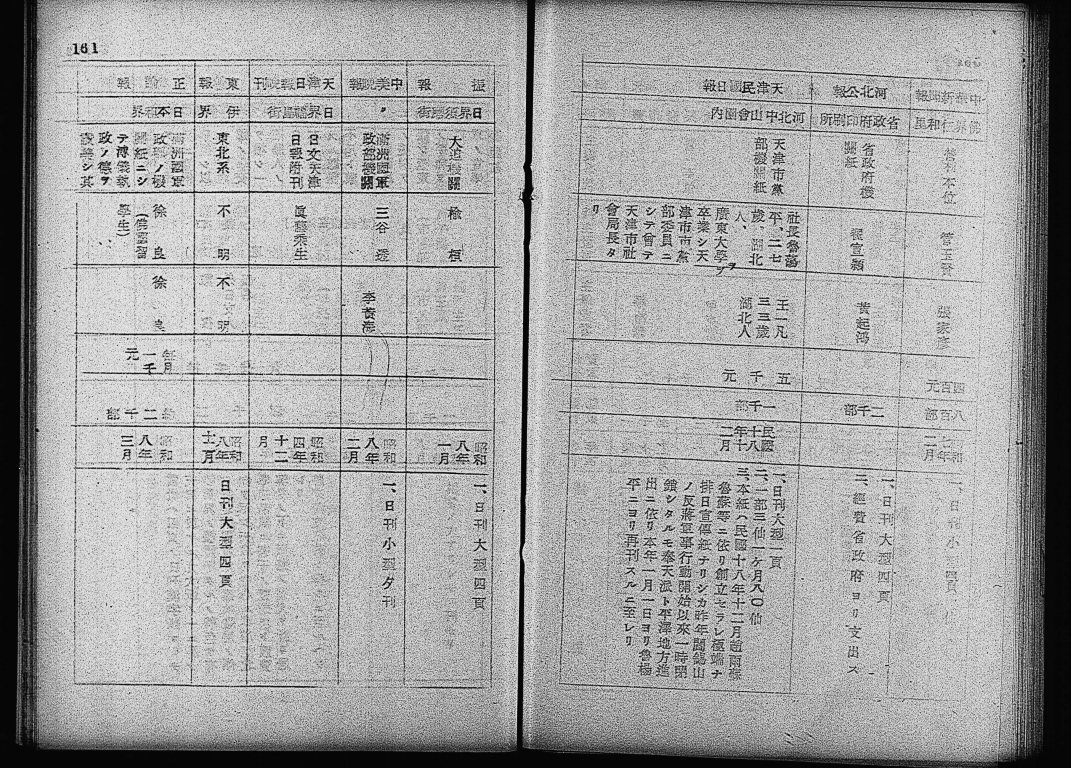 中報
佛租界
管玉賢
張家彥
四百元
八百部
一、日刊小型四頁
河北公報
省政府印刷所
省政府機
關紙
黃起鴻
二千部
一、日刊大型四頁
二、經費省政府ヨリ支出ス
天津民國日報
河北中山公園內
天津市黨
部機關紙
平、二七
歲、湖北
人、
廣東大學ヲ
卒業シ天
津市市黨
部委員ニ
シテ曾テ
天津市社
會局長タ
リ
王一凡
三三歲
湖北人
五千元
一千部
民國
十八
年十
二月
一、日刊大型一頁
二、一部三仙一ケ月八〇仙
三、本紙ハ民國十八年十二月趙雨蘇
魯蘇等ニ依リ創立セラレ極端ナ
排日宣傳紙ナリシカ昨年閻錫山
ノ反蔣軍事行動開始以來一時閉
鎖シタルモ奉天派ト平津地方進
出ニ依リ本年一月一日ヨリ魯蕩
平ニヨリ再刊スルニ至レリ
161
振報
日界須磨街
大迫機關
楡垣
昭和
八年
一月
一、日刊大型四頁
中美晚報
〃
滿洲國軍
政部機關
三谷透
李養海
昭和
八年
二月
一、日刊小型夕刊
天津日報晚刊
日界福島街
日文天津
日報附刊
眞藤棄生
昭和
四年
十二
月
東報
伊界
東北系
不明
不明
昭和
八年
十一月
日刊大型四頁
正報
日本租界
滿洲國軍
政部ノ機
關紙ニシ
テ溥儀執
政ノ德ヲ
徐良
徐良
每月
一千
元
二千部
昭和
八年
三月